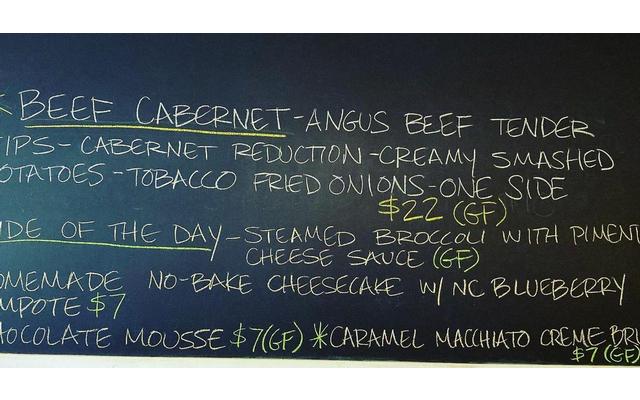 * BEEF CABERNET-ANGUS BEEF TENDER
TIPS-CABERNET REDUCTION-CREAMY SMASHED
OTATOES-TOBACCO FRIED ONIONS-ONE SIDE
$22 (GF)
IDE OF THE DAY-STEAMED BROCCOLI WITH PIMENT
CHEESE SAUCE (GF)
OMEMADE NO-BAKE CHEESECAKE W/ NC BLUEBERRY
MPOTE $7
HOCOLATE MOUSSE $7(GF) *CARAMEL MACCHIATO CREME BRU
$7 (GF)